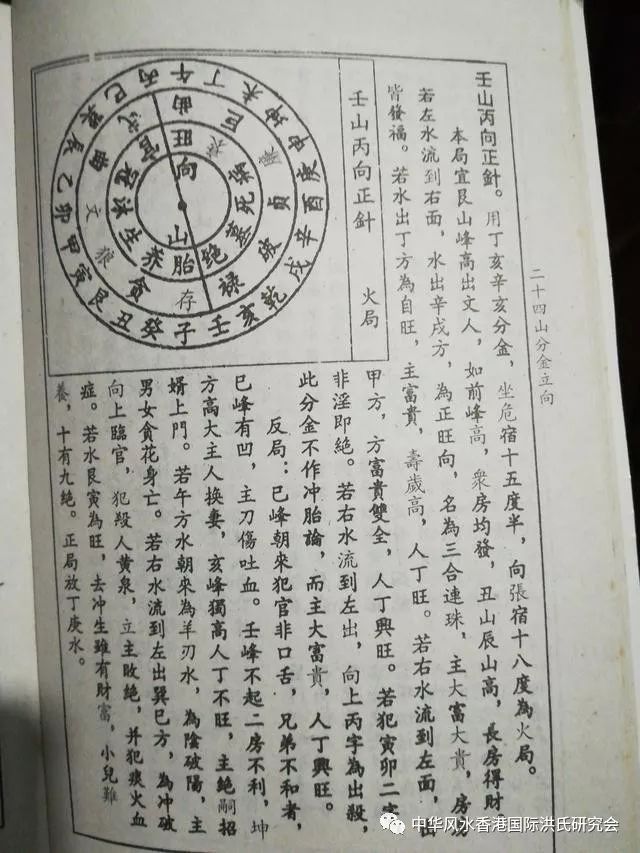 二十四山分金立向
壬山丙向正針。用丁亥辛亥分金，坐危宿十五度半，向張宿十八度為火局。
本局宜艮山峰高出文人，如前峰高，衆房均發，丑山辰山高，長房得財
若左水流到右面，水出辛戌方，為正旺向，名為三合連珠，主大富大貴，房房
皆發福。若水出丁方為自旺，主富貴，壽歲高，人丁旺。若右水流到左面，出
壬山丙向正針
火局
甲方，方富貴雙全，人丁興旺。若犯寅卯二字
非淫即絶。若右水流到左出，向上丙字為出殺，
此分金不作冲胎論，而主大富貴，人丁興旺。
反局：已峰朝來犯官非口舌，兄弟不和者，
巳峰有凹，主刀傷吐血。壬峰不起二房不利，坤
方高大主人换妻，亥峰獨高人丁不旺，主絶嗣招
婿上門。若午方水朝來為羊刃水，為陰破陽，主
男女貪花身亡。若右水流到左出巽巳方，為冲破
向上臨官，犯殺人黄泉，立主敗絶，并犯痰火血
症。若水艮寅為旺，去冲生雖有財富，小兒難
養，十有九絶。正局放丁庚水。
午丁未坤申庚酉辛戌乾亥壬子癸丑艮寅甲卯乙辰巽巳丙
曲巨廉貞破禄存貪狼文曲武
旺衰病死墓绝胎养生沐冠官
向
山
中华风水香港国际洪氏研究会